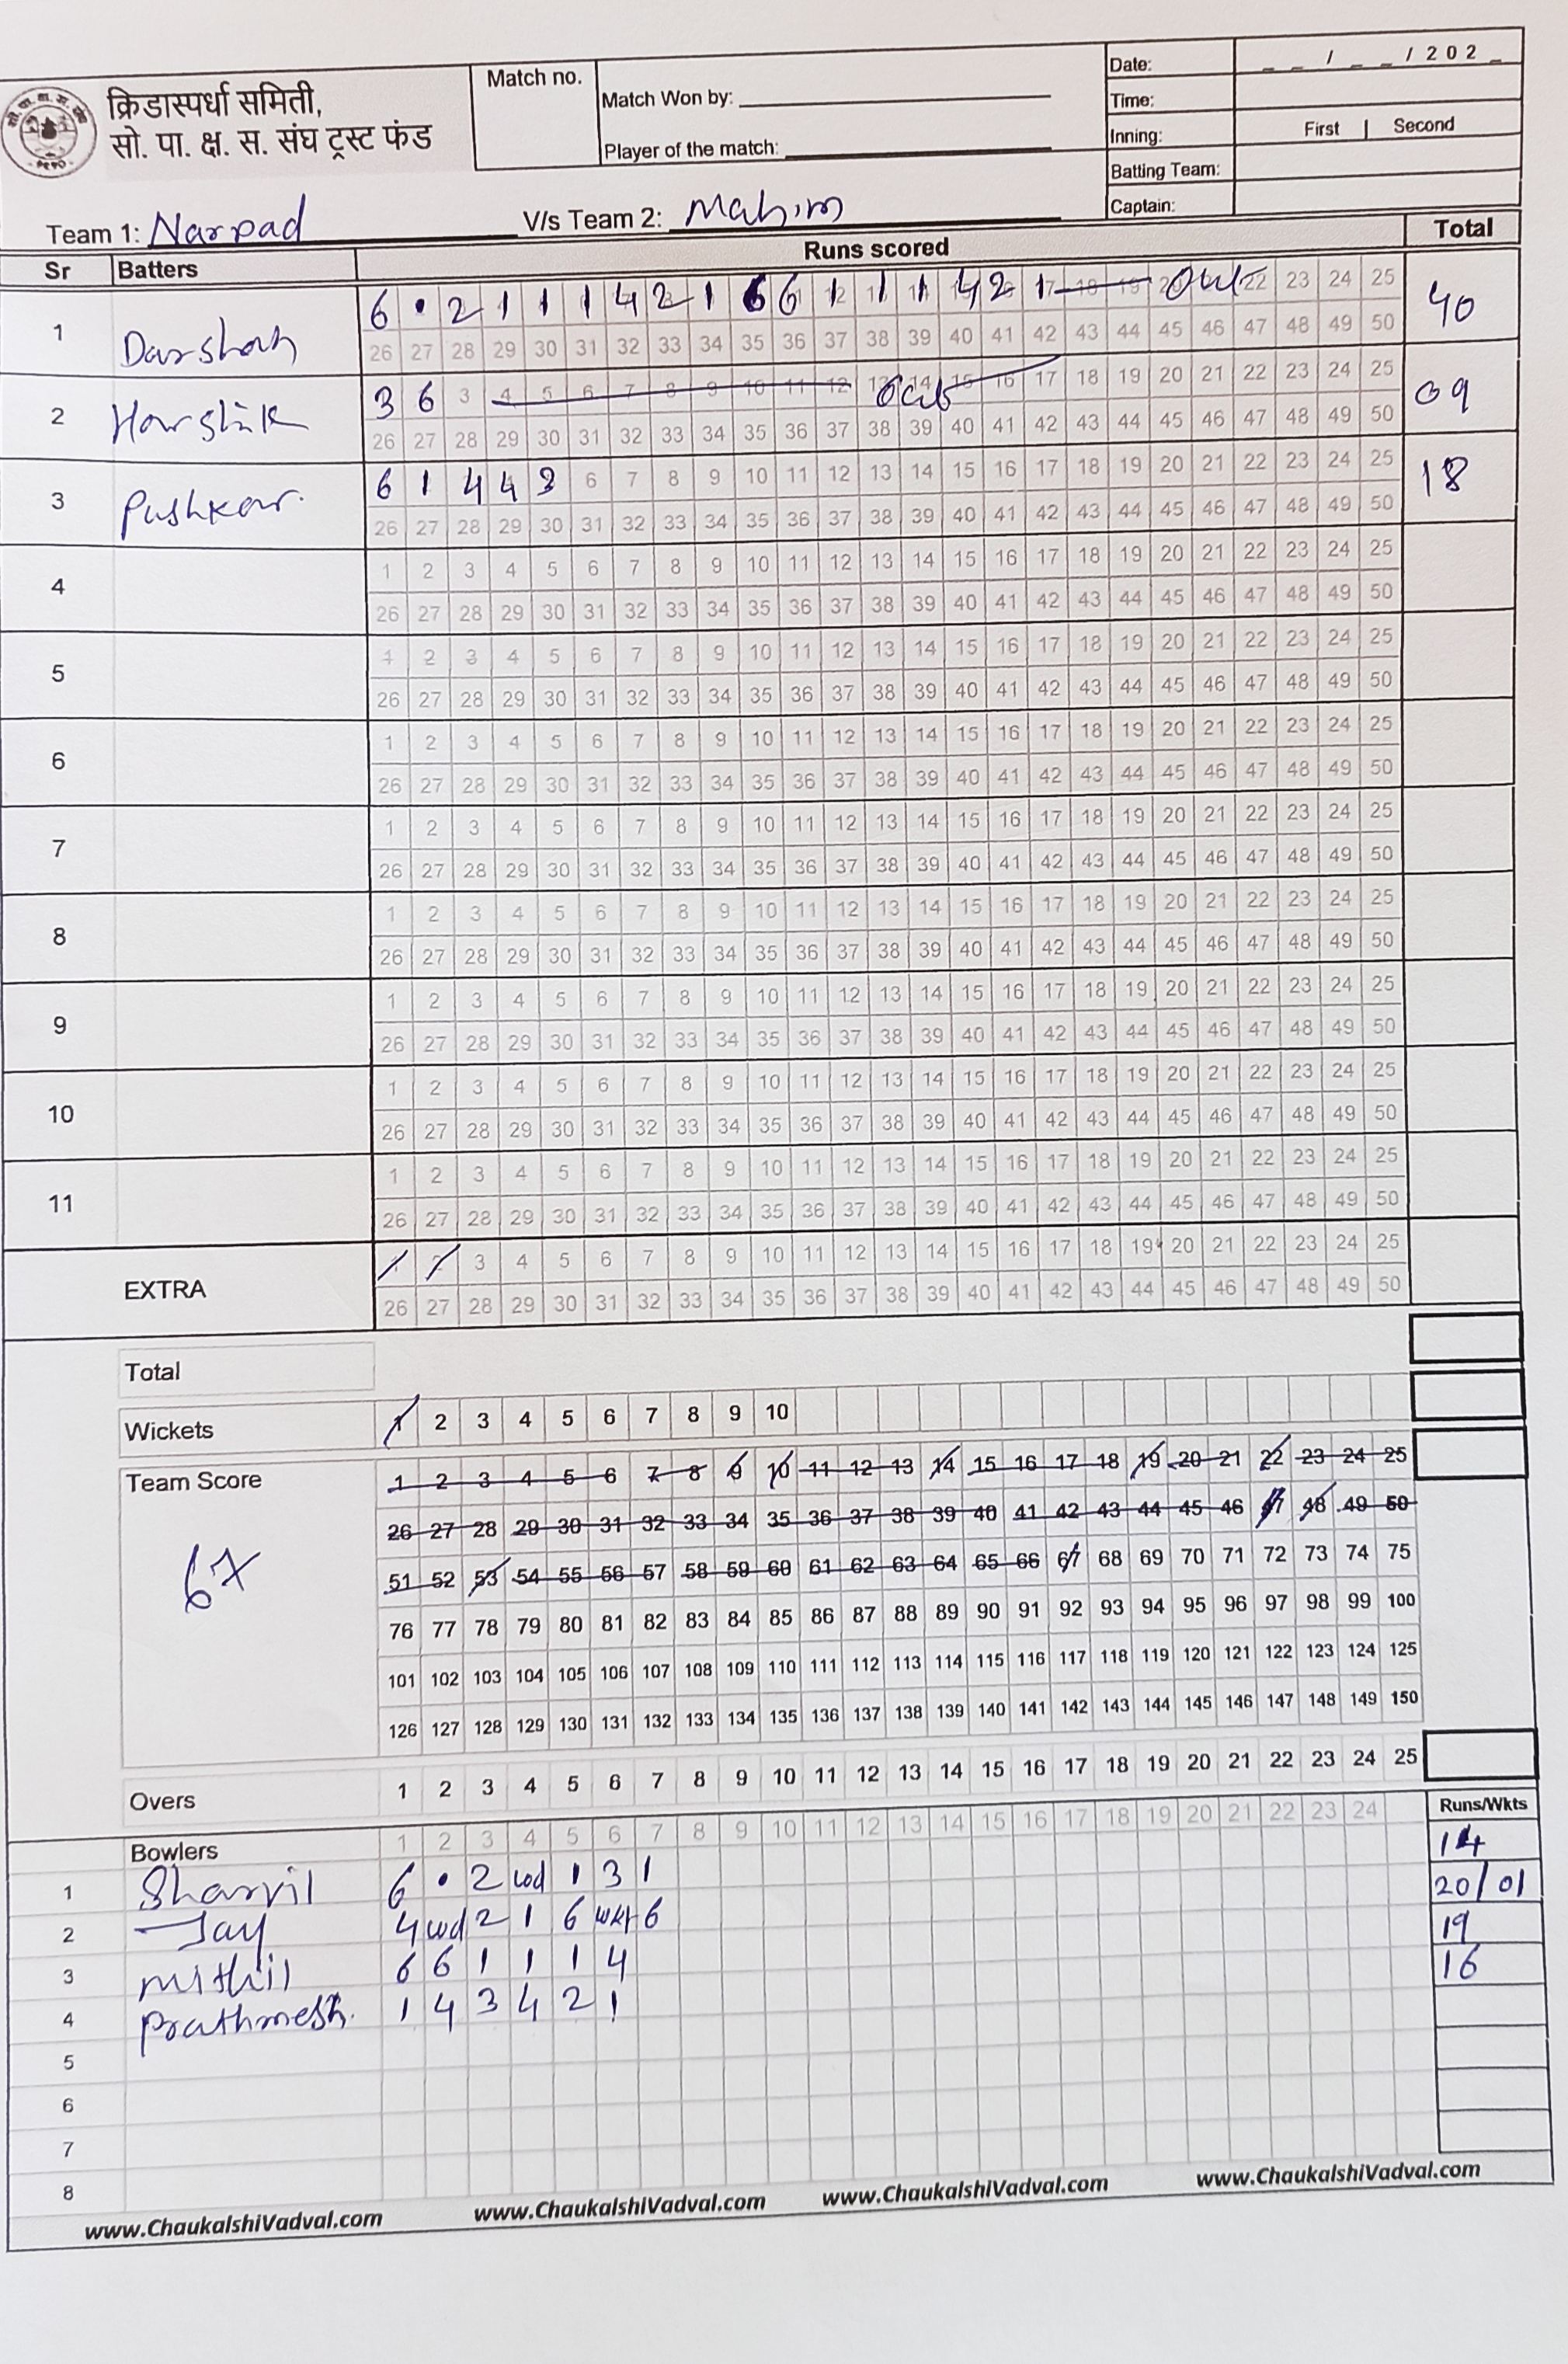 क्रिडास्पर्धा समिती,
सो. पा. क्ष. स. संघ ट्रस्ट फंड
Match no.
Match Won by:
Player of the match:
Date: _ _ / _ _ / 2 0 2 _
Time:
Inning: First | Second
Batting Team:
Captain:
Team 1: Narpad V/s Team 2: Mahim
Sr Batters Runs scored Total
1 Darshan 6 • 2 1 1 1 4 2 1 6 6 1 1 1 4 2 1 out 22 23 24 25 40
26 27 28 29 30 31 32 33 34 35 36 37 38 39 40 41 42 43 44 45 46 47 48 49 50
2 Harshik 3 6 3 4 5 6 7 8 9 10 11 12 out 15 16 17 18 19 20 21 22 23 24 25 09
26 27 28 29 30 31 32 33 34 35 36 37 38 39 40 41 42 43 44 45 46 47 48 49 50
3 Pushkar. 6 1 4 4 3 6 7 8 9 10 11 12 13 14 15 16 17 18 19 20 21 22 23 24 25 18
26 27 28 29 30 31 32 33 34 35 36 37 38 39 40 41 42 43 44 45 46 47 48 49 50
4 1 2 3 4 5 6 7 8 9 10 11 12 13 14 15 16 17 18 19 20 21 22 23 24 25
26 27 28 29 30 31 32 33 34 35 36 37 38 39 40 41 42 43 44 45 46 47 48 49 50
5 1 2 3 4 5 6 7 8 9 10 11 12 13 14 15 16 17 18 19 20 21 22 23 24 25
26 27 28 29 30 31 32 33 34 35 36 37 38 39 40 41 42 43 44 45 46 47 48 49 50
6 1 2 3 4 5 6 7 8 9 10 11 12 13 14 15 16 17 18 19 20 21 22 23 24 25
26 27 28 29 30 31 32 33 34 35 36 37 38 39 40 41 42 43 44 45 46 47 48 49 50
7 1 2 3 4 5 6 7 8 9 10 11 12 13 14 15 16 17 18 19 20 21 22 23 24 25
26 27 28 29 30 31 32 33 34 35 36 37 38 39 40 41 42 43 44 45 46 47 48 49 50
8 1 2 3 4 5 6 7 8 9 10 11 12 13 14 15 16 17 18 19 20 21 22 23 24 25
26 27 28 29 30 31 32 33 34 35 36 37 38 39 40 41 42 43 44 45 46 47 48 49 50
9 1 2 3 4 5 6 7 8 9 10 11 12 13 14 15 16 17 18 19 20 21 22 23 24 25
26 27 28 29 30 31 32 33 34 35 36 37 38 39 40 41 42 43 44 45 46 47 48 49 50
10 1 2 3 4 5 6 7 8 9 10 11 12 13 14 15 16 17 18 19 20 21 22 23 24 25
26 27 28 29 30 31 32 33 34 35 36 37 38 39 40 41 42 43 44 45 46 47 48 49 50
11 1 2 3 4 5 6 7 8 9 10 11 12 13 14 15 16 17 18 19 20 21 22 23 24 25
26 27 28 29 30 31 32 33 34 35 36 37 38 39 40 41 42 43 44 45 46 47 48 49 50
EXTRA 1 2 3 4 5 6 7 8 9 10 11 12 13 14 15 16 17 18 19 20 21 22 23 24 25
26 27 28 29 30 31 32 33 34 35 36 37 38 39 40 41 42 43 44 45 46 47 48 49 50
Total
Wickets 1 2 3 4 5 6 7 8 9 10
Team Score 1 2 3 4 5 6 7 8 9 10 11 12 13 14 15 16 17 18 19 20 21 22 23 24 25
26 27 28 29 30 31 32 33 34 35 36 37 38 39 40 41 42 43 44 45 46 47 48 49 50
67 51 52 53 54 55 56 57 58 59 60 61 62 63 64 65 66 67 68 69 70 71 72 73 74 75
76 77 78 79 80 81 82 83 84 85 86 87 88 89 90 91 92 93 94 95 96 97 98 99 100
101 102 103 104 105 106 107 108 109 110 111 112 113 114 115 116 117 118 119 120 121 122 123 124 125
126 127 128 129 130 131 132 133 134 135 136 137 138 139 140 141 142 143 144 145 146 147 148 149 150
Overs 1 2 3 4 5 6 7 8 9 10 11 12 13 14 15 16 17 18 19 20 21 22 23 24 25
Bowlers 1 2 3 4 5 6 7 8 9 10 11 12 13 14 15 16 17 18 19 20 21 22 23 24 Runs/Wkts
1 Sharvil 6 • 2 wd 1 3 1 14
2 Jay 4 wd 2 1 6 wkt 6 20/01
3 mithil 6 6 1 1 1 4 19
4 prathmesh. 1 4 3 4 2 1 16
5
6
7
8
www.ChaukalshiVadval.com www.ChaukalshiVadval.com www.ChaukalshiVadval.com www.ChaukalshiVadval.com